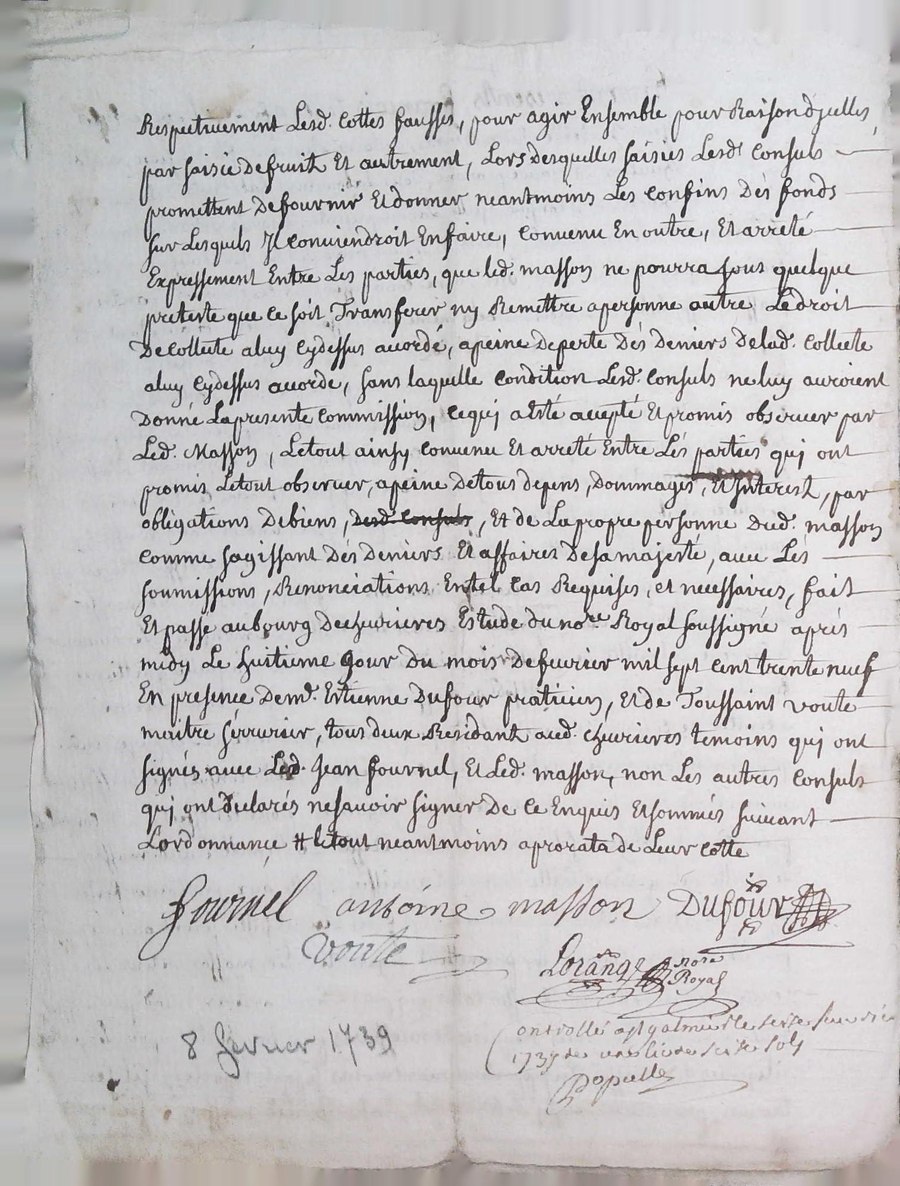 Respectivement Lesd. Cottes fausses, pour agir Ensemble pour Raison d'jcelles,
par saisie de fruits Et autrement, Lors desquelles saisies Lesd. Consuls
promettent De fournir Et donner neantmoins Les confins Dés fonds
sur Lesquels Jl conviendroit En faire, convenu En outre, Et arrété
Expressement Entre Les parties, que led. masson ne pourra sous quelque
prétexte que ce soit Transferer ny Remettre a personne autre Le droit
De Collecte a luy Cydessus accordé, a peine de perte Dés Deniers De lad. Collecte
a luy Cydessus accorde, sans laquelle condition Lesd. Consuls ne luy auroient
Donné La presente Commission, ce qui a Esté accepté Et promis observer par
Led. Masson, Le tout ainsy convenu Et arreté Entre Lés parties qui ont
promis Le tout observer, a peine De tous depens, Dommages, Et Interest, par
obligations De biens, Desd. Consuls, Et de La propre personne Dud. masson
comme sagissant Dés Deniers Et affaires De sa majesté, avec Lés
soumissions, Renonciations En tel Cas Requises, et necessaires, fait
Et passé au bourg De chevrieres Estude du nore. Royal soussigné aprés
midy Le huitieme Jour Du mois De fevrier mil sept cent trente neuf
En presence De mr. Estienne Dufour praticien, Et de Toussaint voute
maitre sérrurier, tous deux Residants aud. chévrieres temoins qui ont
signés avec Led. Jean fournel, Et Led. masson, non Les autres Consuls
qui ont declarés ne savoir signer De Ce Enquis Et sommés suivant
Lordonnance # le tout neantmoins a prorata de Leur Cotte
fournel antoine masson Dufour
Voute
Lorange nore
Royal
8 fevrier 1739
Controllé a st galmier le seise fevrier
1739 Reçu une livre seise sols
Populle